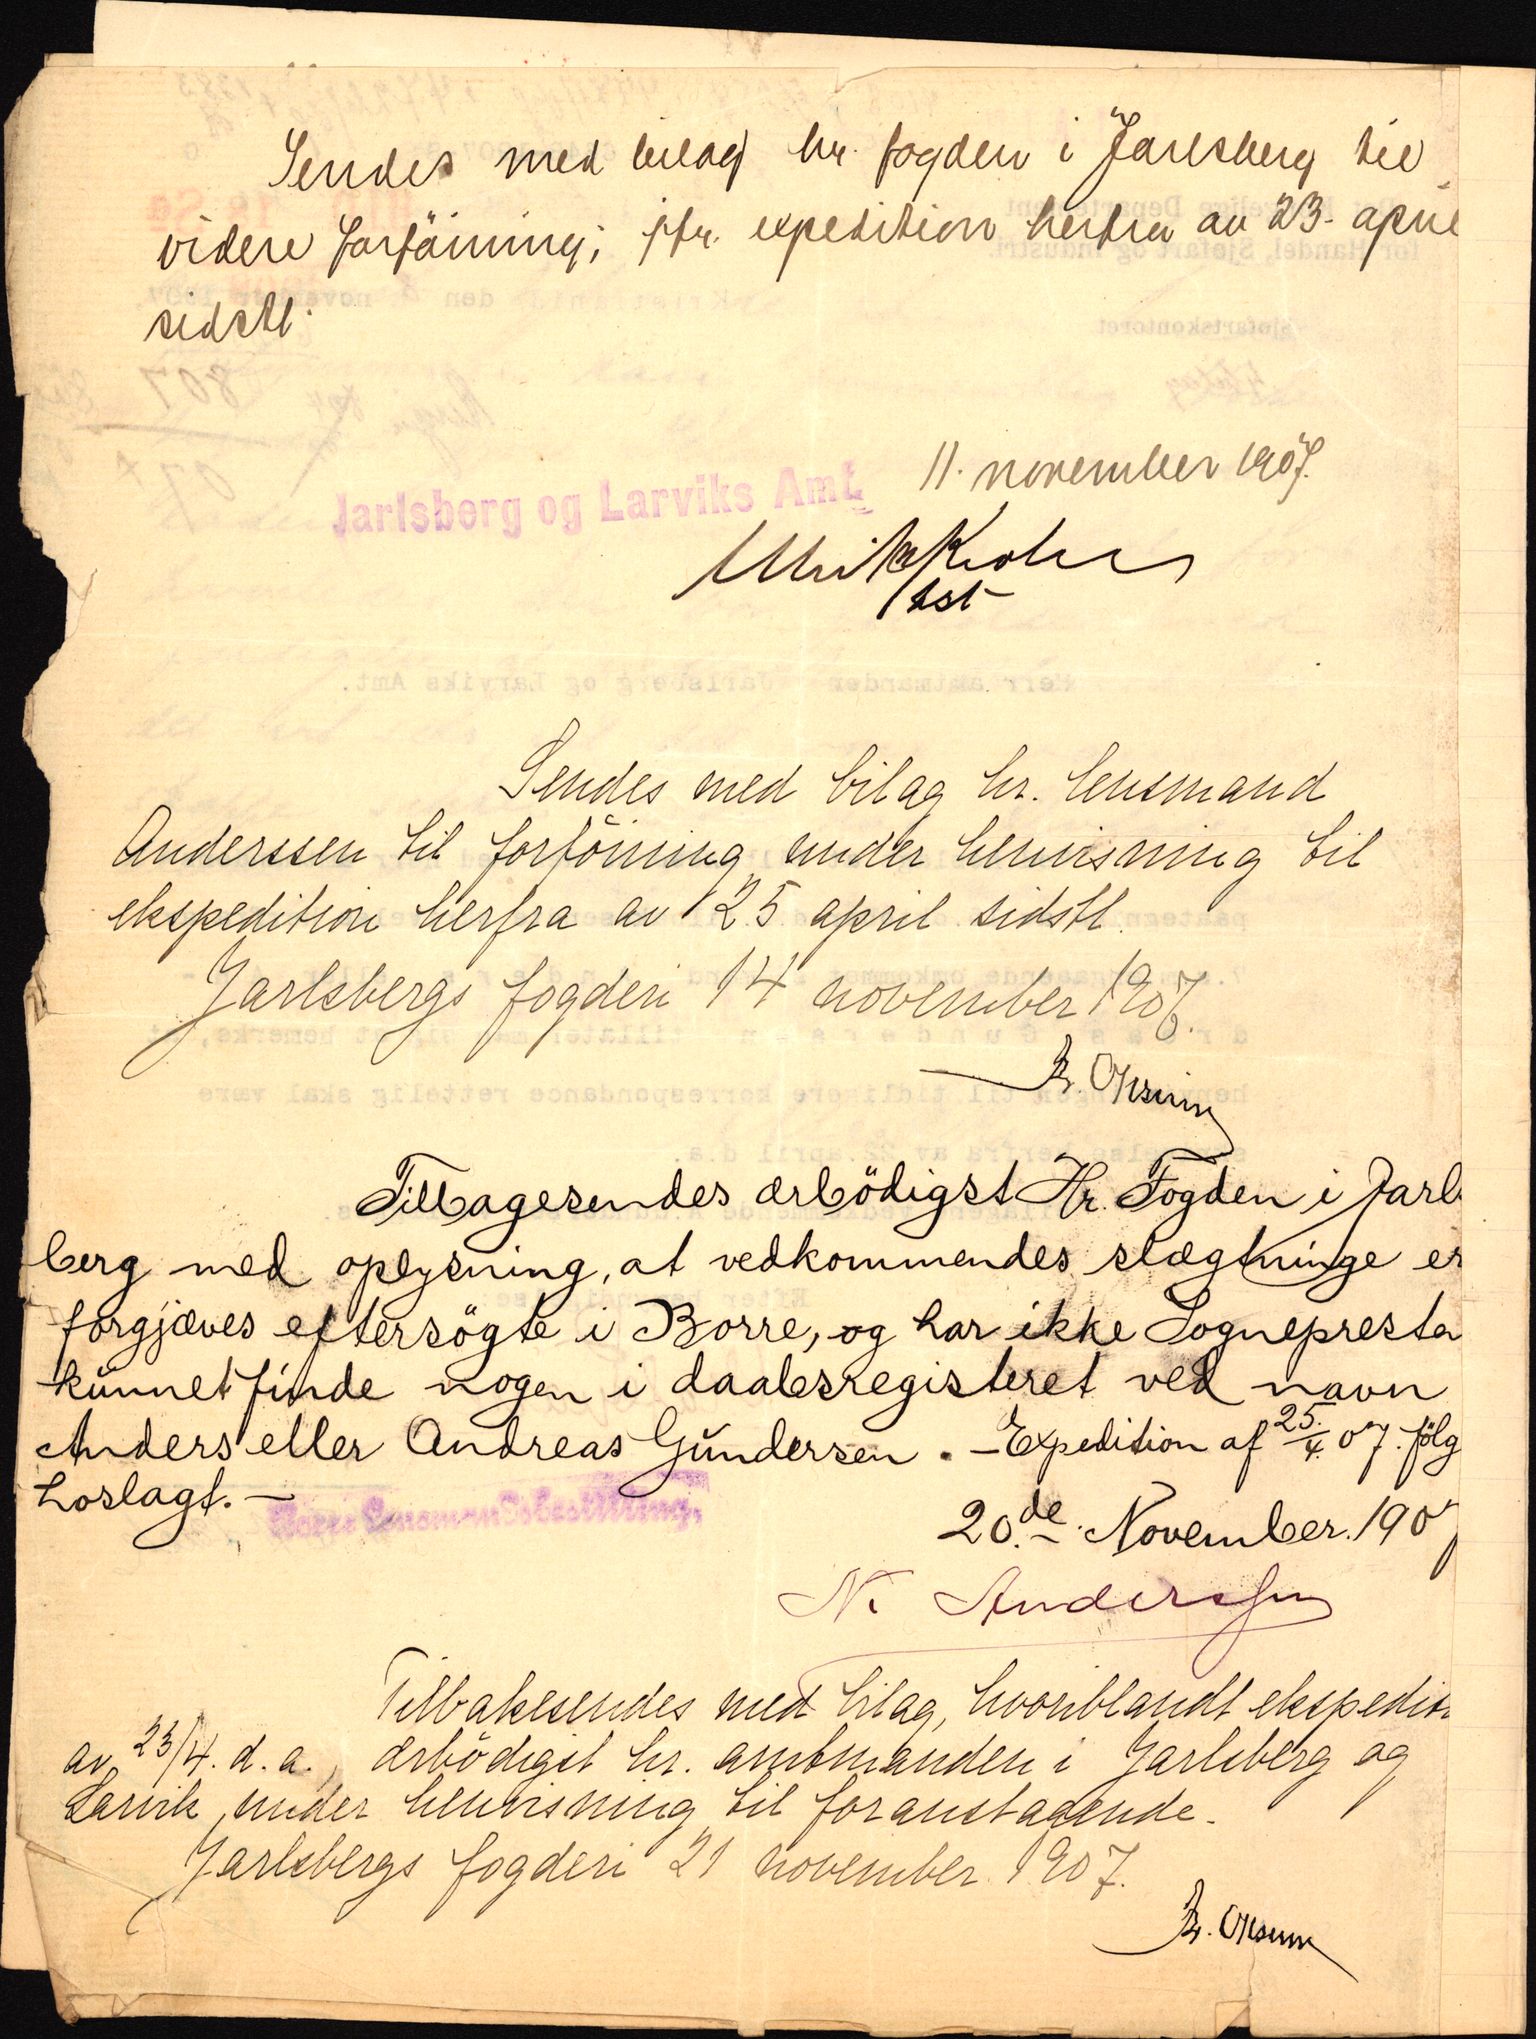 Sendes med bilag hr. fogden i Jarlsberg til
videre forföining; jfr. expedition herfra av 23. april
sidstl.
11. november 1907.
Jarlsberg og Larviks Amt.
kst
Sendes med bilag hr. lensmand
Anderssen til forföining under henvisning til
ekspedition herfra av 25 april sidstl.
Jarlsbergs fogderi 14 november 1907.
Tilbagesendes ærbödigst Hr. Fogden i Jarls
berg med oplysning, at vedkommendes slægtninge er
forgjæves eftersögte i Borre, og har ikke Sognepresten
kunnet finde nogen i daabsregisteret ved navn
Anders eller Andreas Gundersen. — Expedition af 25/4. 07. fölg
hoslagt. —
Borre Lensmandsbestilling.
20.de November. 1907
N. Anderssen
Tilbakesendes med bilag, hvoriblandt ekspedition
av 23/4. d. a., ærbödigst hr. amtmanden i Jarlsberg og
Larvik, under henvisning til foranstaaende.
Jarlsbergs fogderi 21 november 1907.